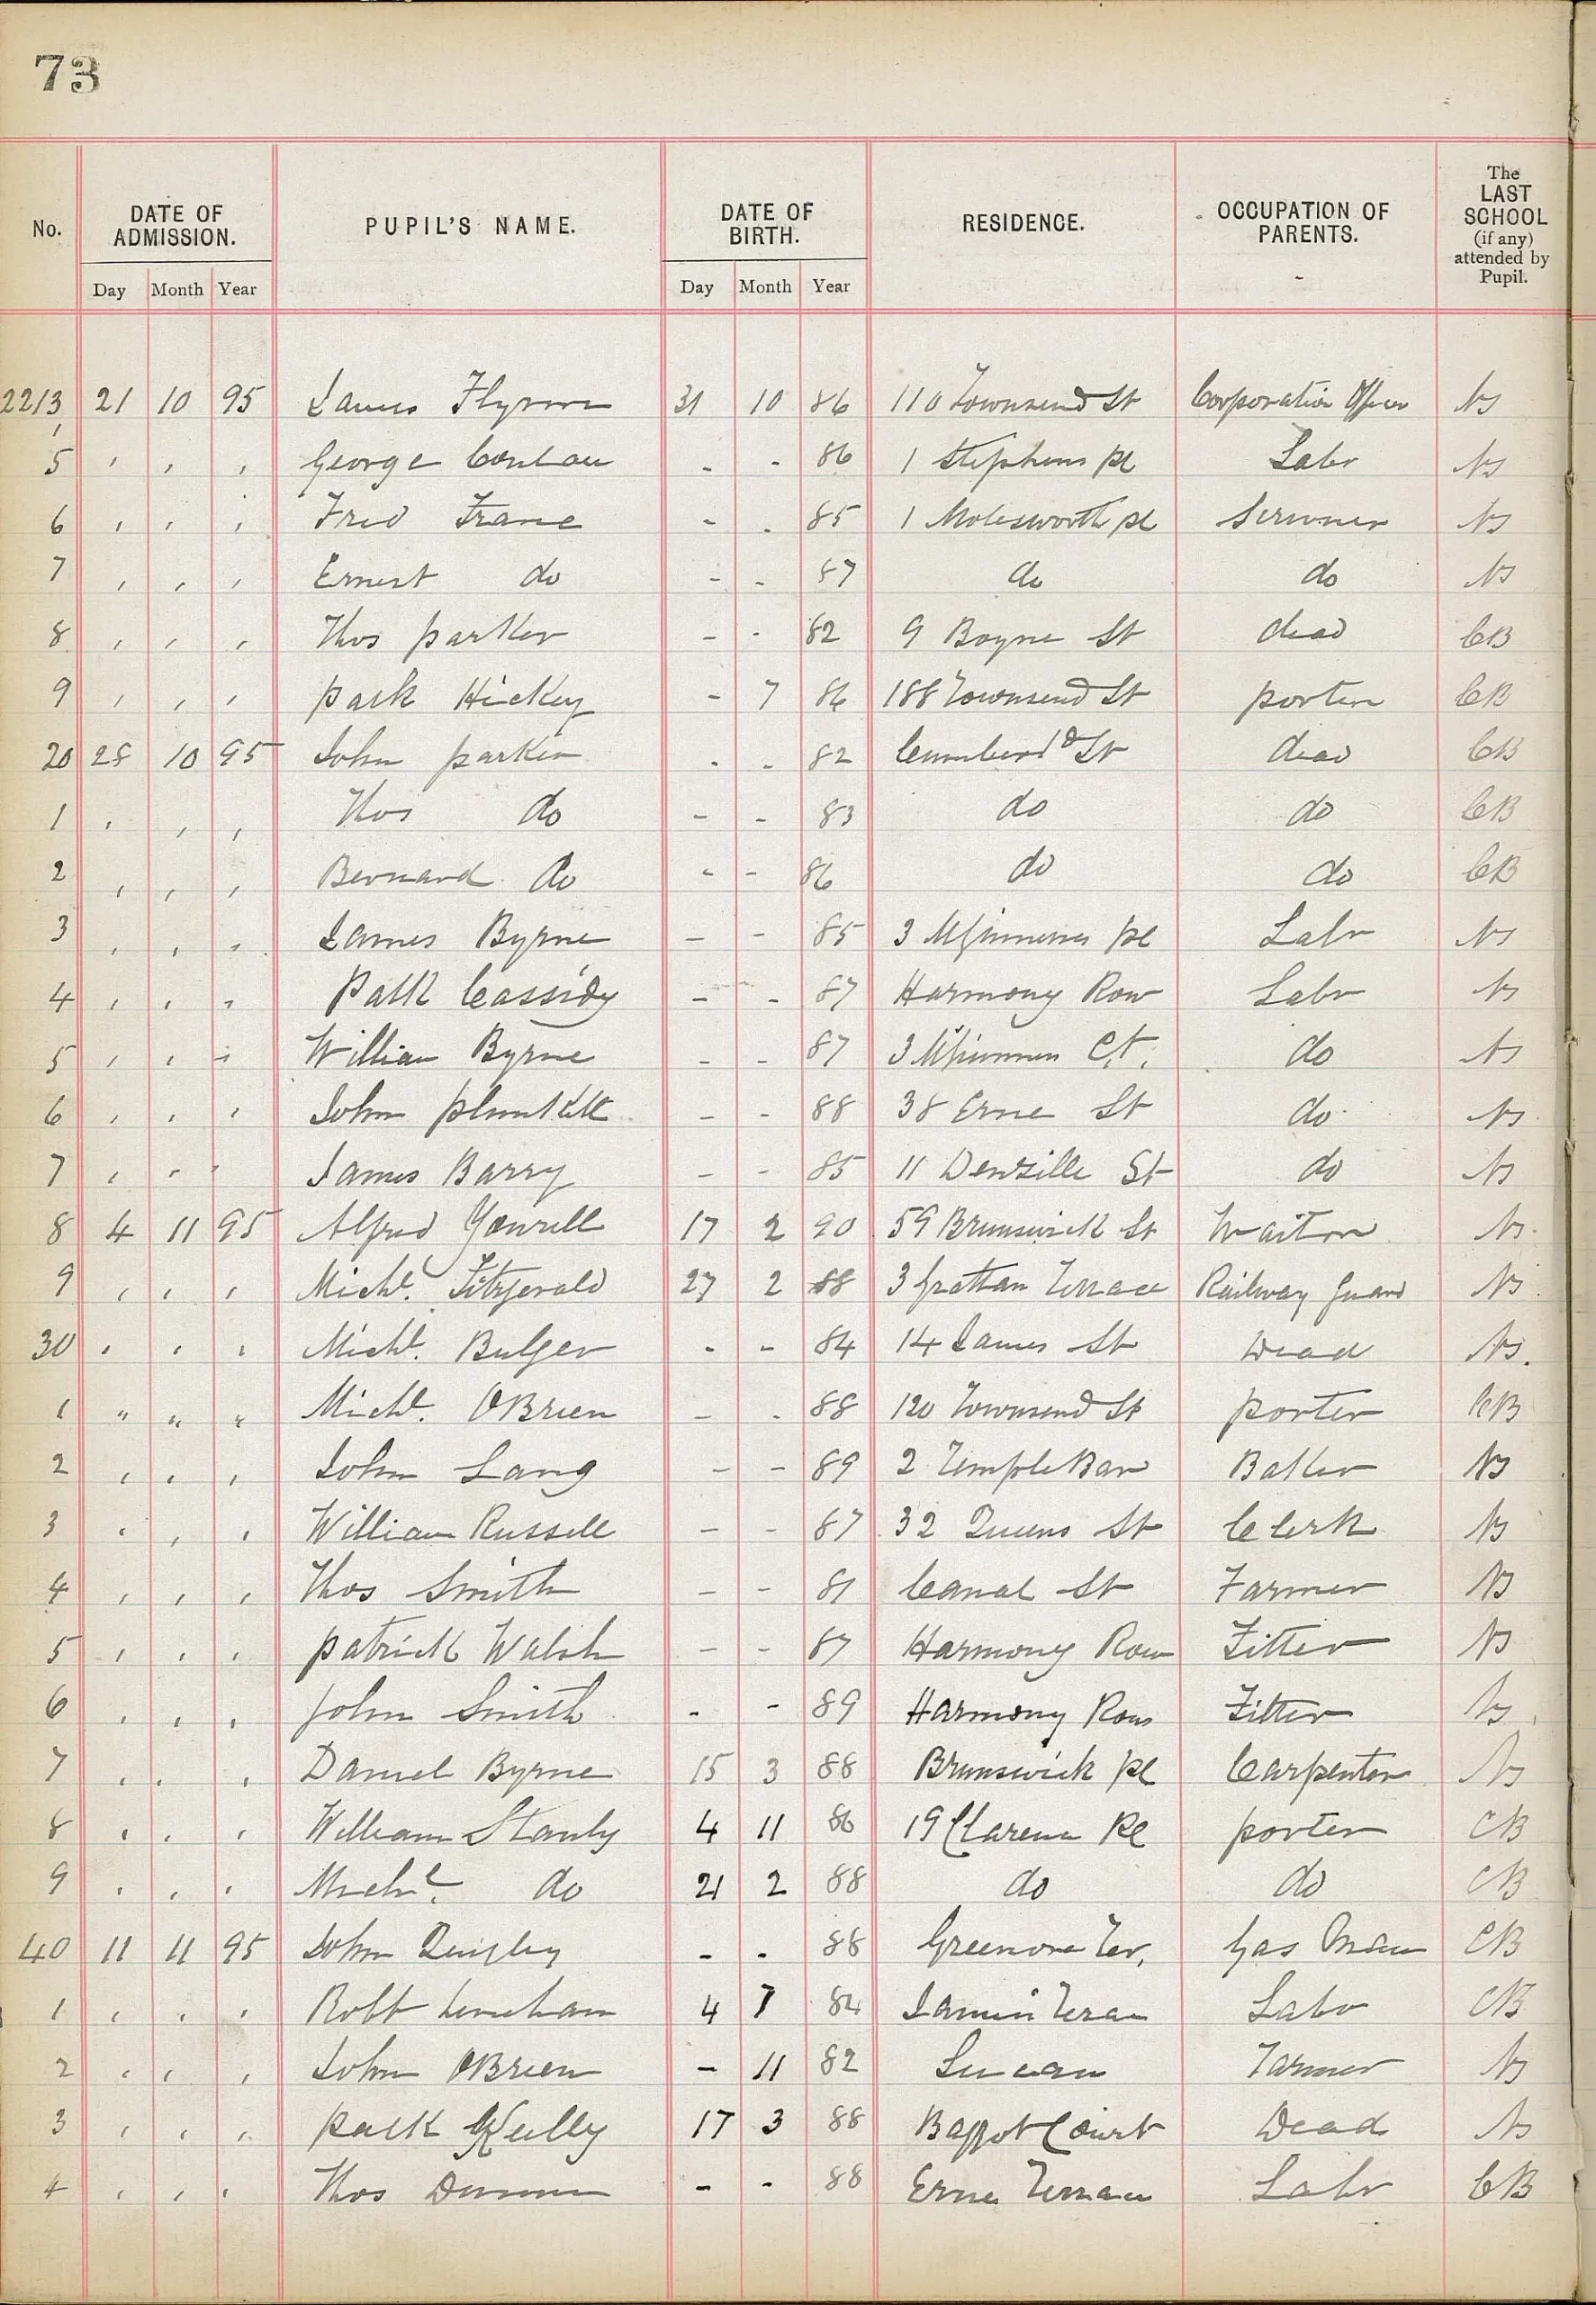 73
No. DATE OF ADMISSION. PUPIL'S NAME. DATE OF BIRTH. RESIDENCE. OCCUPATION OF PARENTS. The LAST SCHOOL (if any) attended by Pupil.
Day Month Year Day Month Year
2213 21 10 95 James Flynn 31 10 86 110 Townsend St Corporation Officer NS
5 , , , George - - 86 1 Stephens pl Labr NS
6 , , , Fred Frane - - 85 1 Molesworth pl Scrivener NS
7 , , , Ernest do - - 87 do do NS
8 , , , Thos parker - - 82 9 Boyne St dead CB
9 , , , patk Hickey - 7 86 188 Townsend St porter CB
20 28 10 95 John parker - - 82 St dead CB
1 , , , Thos do - - 83 do do CB
2 , , , Bernard do - - 86 do do CB
3 , , , James Byrne - - 85 3 pl Labr NS
4 , , , Patk Cassidy - - 87 Harmony Row Labr NS
5 , , , William Byrne - - 87 3 Ct. do NS
6 , , , John plunkett - - 88 38 Erne St do NS
7 , , , James Barry - - 85 11 Denzille St do NS
8 4 11 95 Alfred Yowell 17 2 90 59 Brunswick St Waiter NS
9 , , , Michl. Fitzgerald 27 2 88 3 Grattan Terrace Railway Guard NS
30 , , , Michl. Bulger - - 84 14 James St Dead NS.
1 " " " Michl. OBrien - - 88 120 Townsend St porter CB
2 , , , John Lang - - 89 2 Temple Bar Baker NS
3 , , , William Russell - - 87 32 Queens St Clerk NS
4 , , , Thos Smith - - 81 Canal St Farmer NS
5 , , , patrick Walsh - - 87 Harmony Row Fitter NS
6 , , , John Smith - - 89 Harmony Row Fitter NS
7 , , , Daniel Byrne 15 3 88 Brunswick pl Carpenter NS
8 , , , William Stanly 4 11 86 19 Clarence Pl porter CB
9 , , , Michl. do 21 2 88 do do CB
40 11 11 95 John Quigley - - 88 Greenore Ter. Gas Man CB
1 , , , Robt Lenehan 4 7 84 Labr CB
2 , , , John OBrien - 11 82 Lucan Farmer NS
3 , , , patk Kelly 17 3 88 Baggot Court Dead NS
4 , , , Thos - - 88 Erne Terrace Labr CB